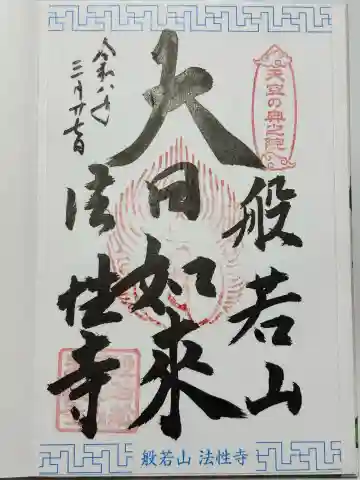 天空の奥之院
般若山
大日如來
法性寺
令和八年
三月廿七日
般若山 法性寺